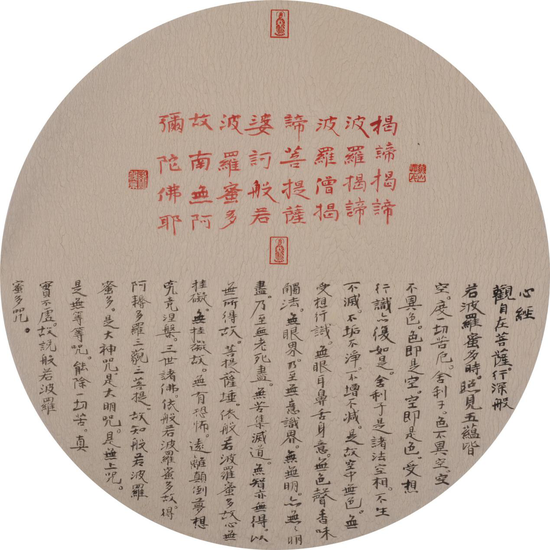 揭諦揭諦
波羅揭諦
波羅僧揭
諦菩提薩
婆訶般若
波羅蜜多
故南無阿
彌陀佛耶
心經
觀自在菩薩。行深般
若波羅蜜多時。照見五蘊皆
空。度一切苦厄。舍利子。色不異空。空
不異色。色即是空。空即是色。受想
行識。亦復如是。舍利子。是諸法空相。不生
不滅。不垢不淨。不增不減。是故空中無色。無
受想行識。無眼耳鼻舌身意。無色聲香味
觸法。無眼界乃至無意識界。無無明。亦無無明
盡。乃至無老死盡。無苦集滅道。無智亦無得。以
無所得故。菩提薩埵。依般若波羅蜜多故。心無
桂礙。無桂礙故。無有恐怖。遠離顛倒夢想
究竟涅槃。三世諸佛。依般若波羅蜜多故。得
阿耨多羅三藐三菩提。故知般若波羅
蜜多。是大神咒。是大明咒。是無上咒。
是無等等咒。能除一切苦。真
實不虛。故說般若波羅
蜜多咒。